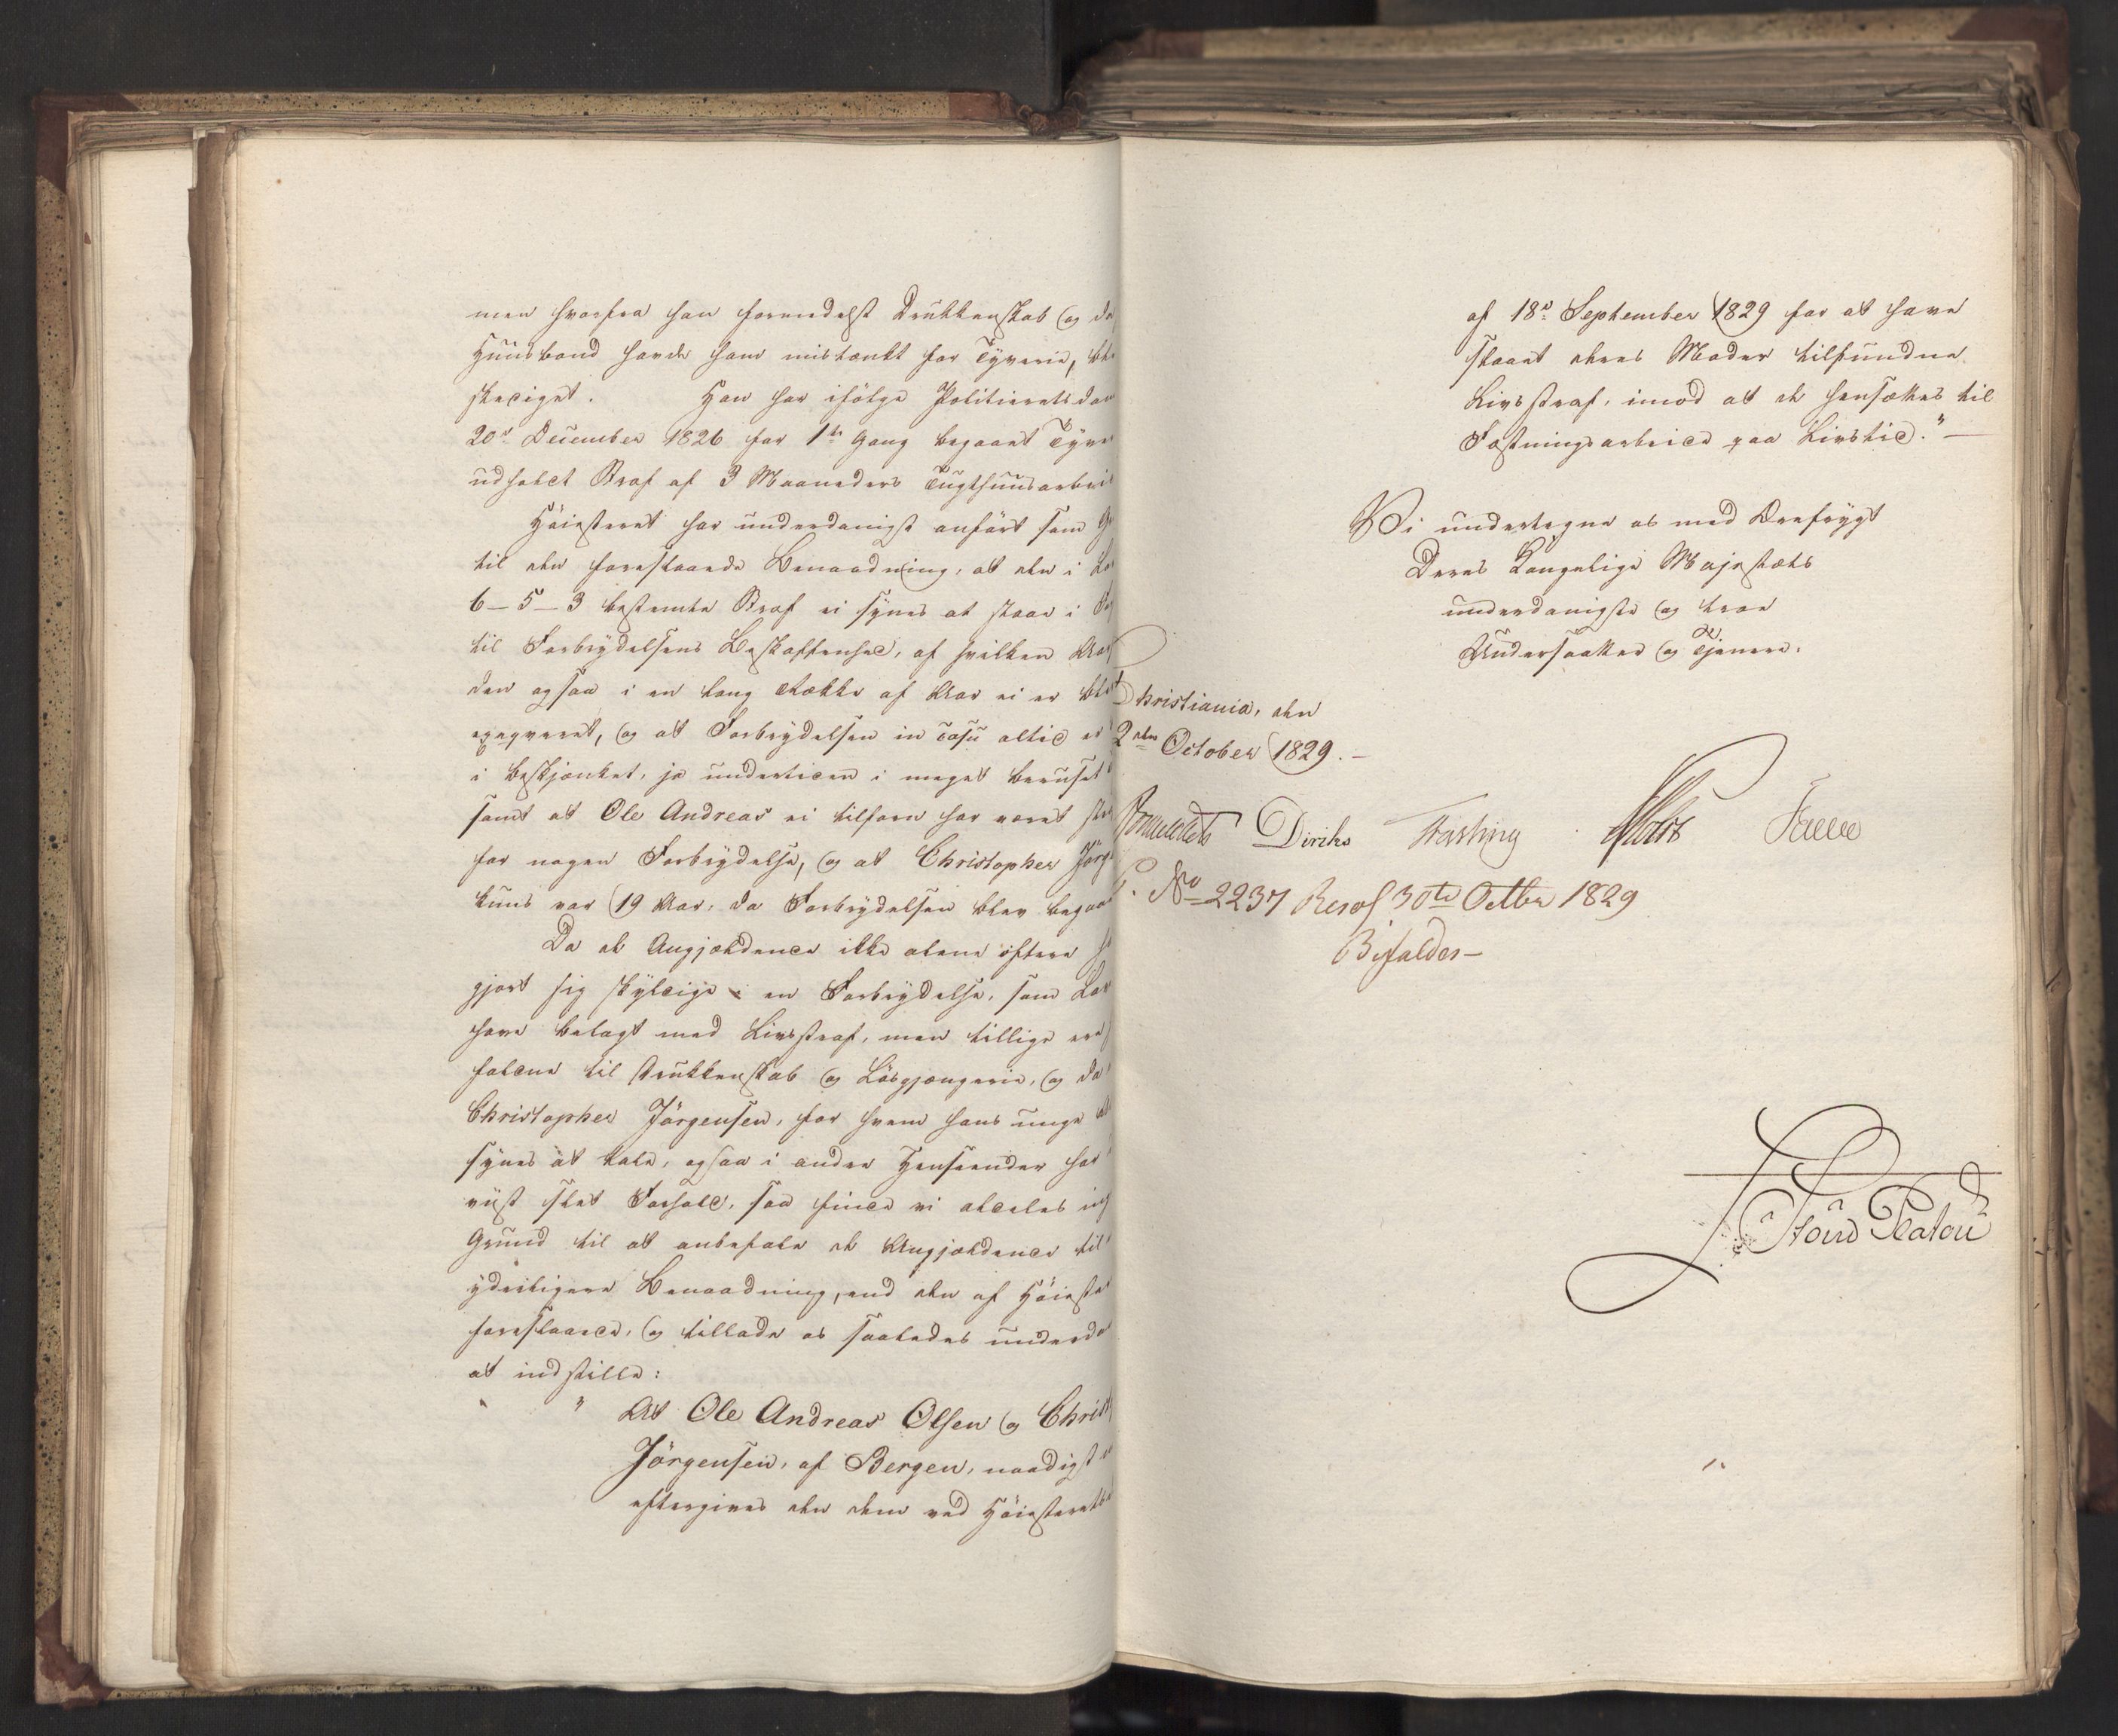 men hvorfra han formedelst Drukkenskab og da
Huusbond havde ham mistænkt for Tyverie, ble
skediget. Han har ifölge Politieretsdom
20de December 1826 for 1ste Gang begaaet Tyve
udholdt Straf af 3 Maaneders Tugthuusarbeid
Höiesteret har underdanigst anfört som Gr
til den forestaaede Benaadning, at den i Lo
6-5-3 bestemte Straf ei synes at staae i
til Forbrydelsens Beskaffenhed, af hvilken Aar
den ogsaa i en lang Række af Aar ei er ble
exeqveret, og at Forbrydelsen in casu altid er
i beskjænket, ja undertiden i meget beruset
samt at Ole Andreas ei tilforn har været str
for nogen Forbrydelse, og at Christopher Jörg
kuns var 19 Aar, da Forbrydelsen blev begaaet
Da de Angjældende ikke alene oftere
gjort sig skyldige i en Forbrydelse, som Lov
have belagt med Livsstraf, men tillige ere
faldne til Drukkenskab og Lösgjængerie, og da
Christopher Jörgensen, for hvem hans unge
synes at tale, ogsaa i andre Henseender har
viist slet Forhold, saa finde vi aldeles in
Grund til at anbefale de Angjældende til
yderligere Benaadning, end den af Höieste
foreslaaede, og tillade os saaledes underda
at indstille:
" At Ole Andreas Olsen og Christ
Jörgensen, af Bergen, naadigst
eftergives den dem ved Höiesterets
af 18de September 1829 for at have
slaaet deres Moder tilfundne
Livsstraf, imod at de hensættes til
Fæstningsarbeide paa Livstid."
Vi undertegne os med Ærefrygt
Deres Kongelige Majestæts
underdanigste og troe
Undersaatter og Tjenere.
Christiania, den
2den October 1829.
Diriks Fasting Holst Falsen
No 2237 Resol 30te Octbr 1829
Bifaldes